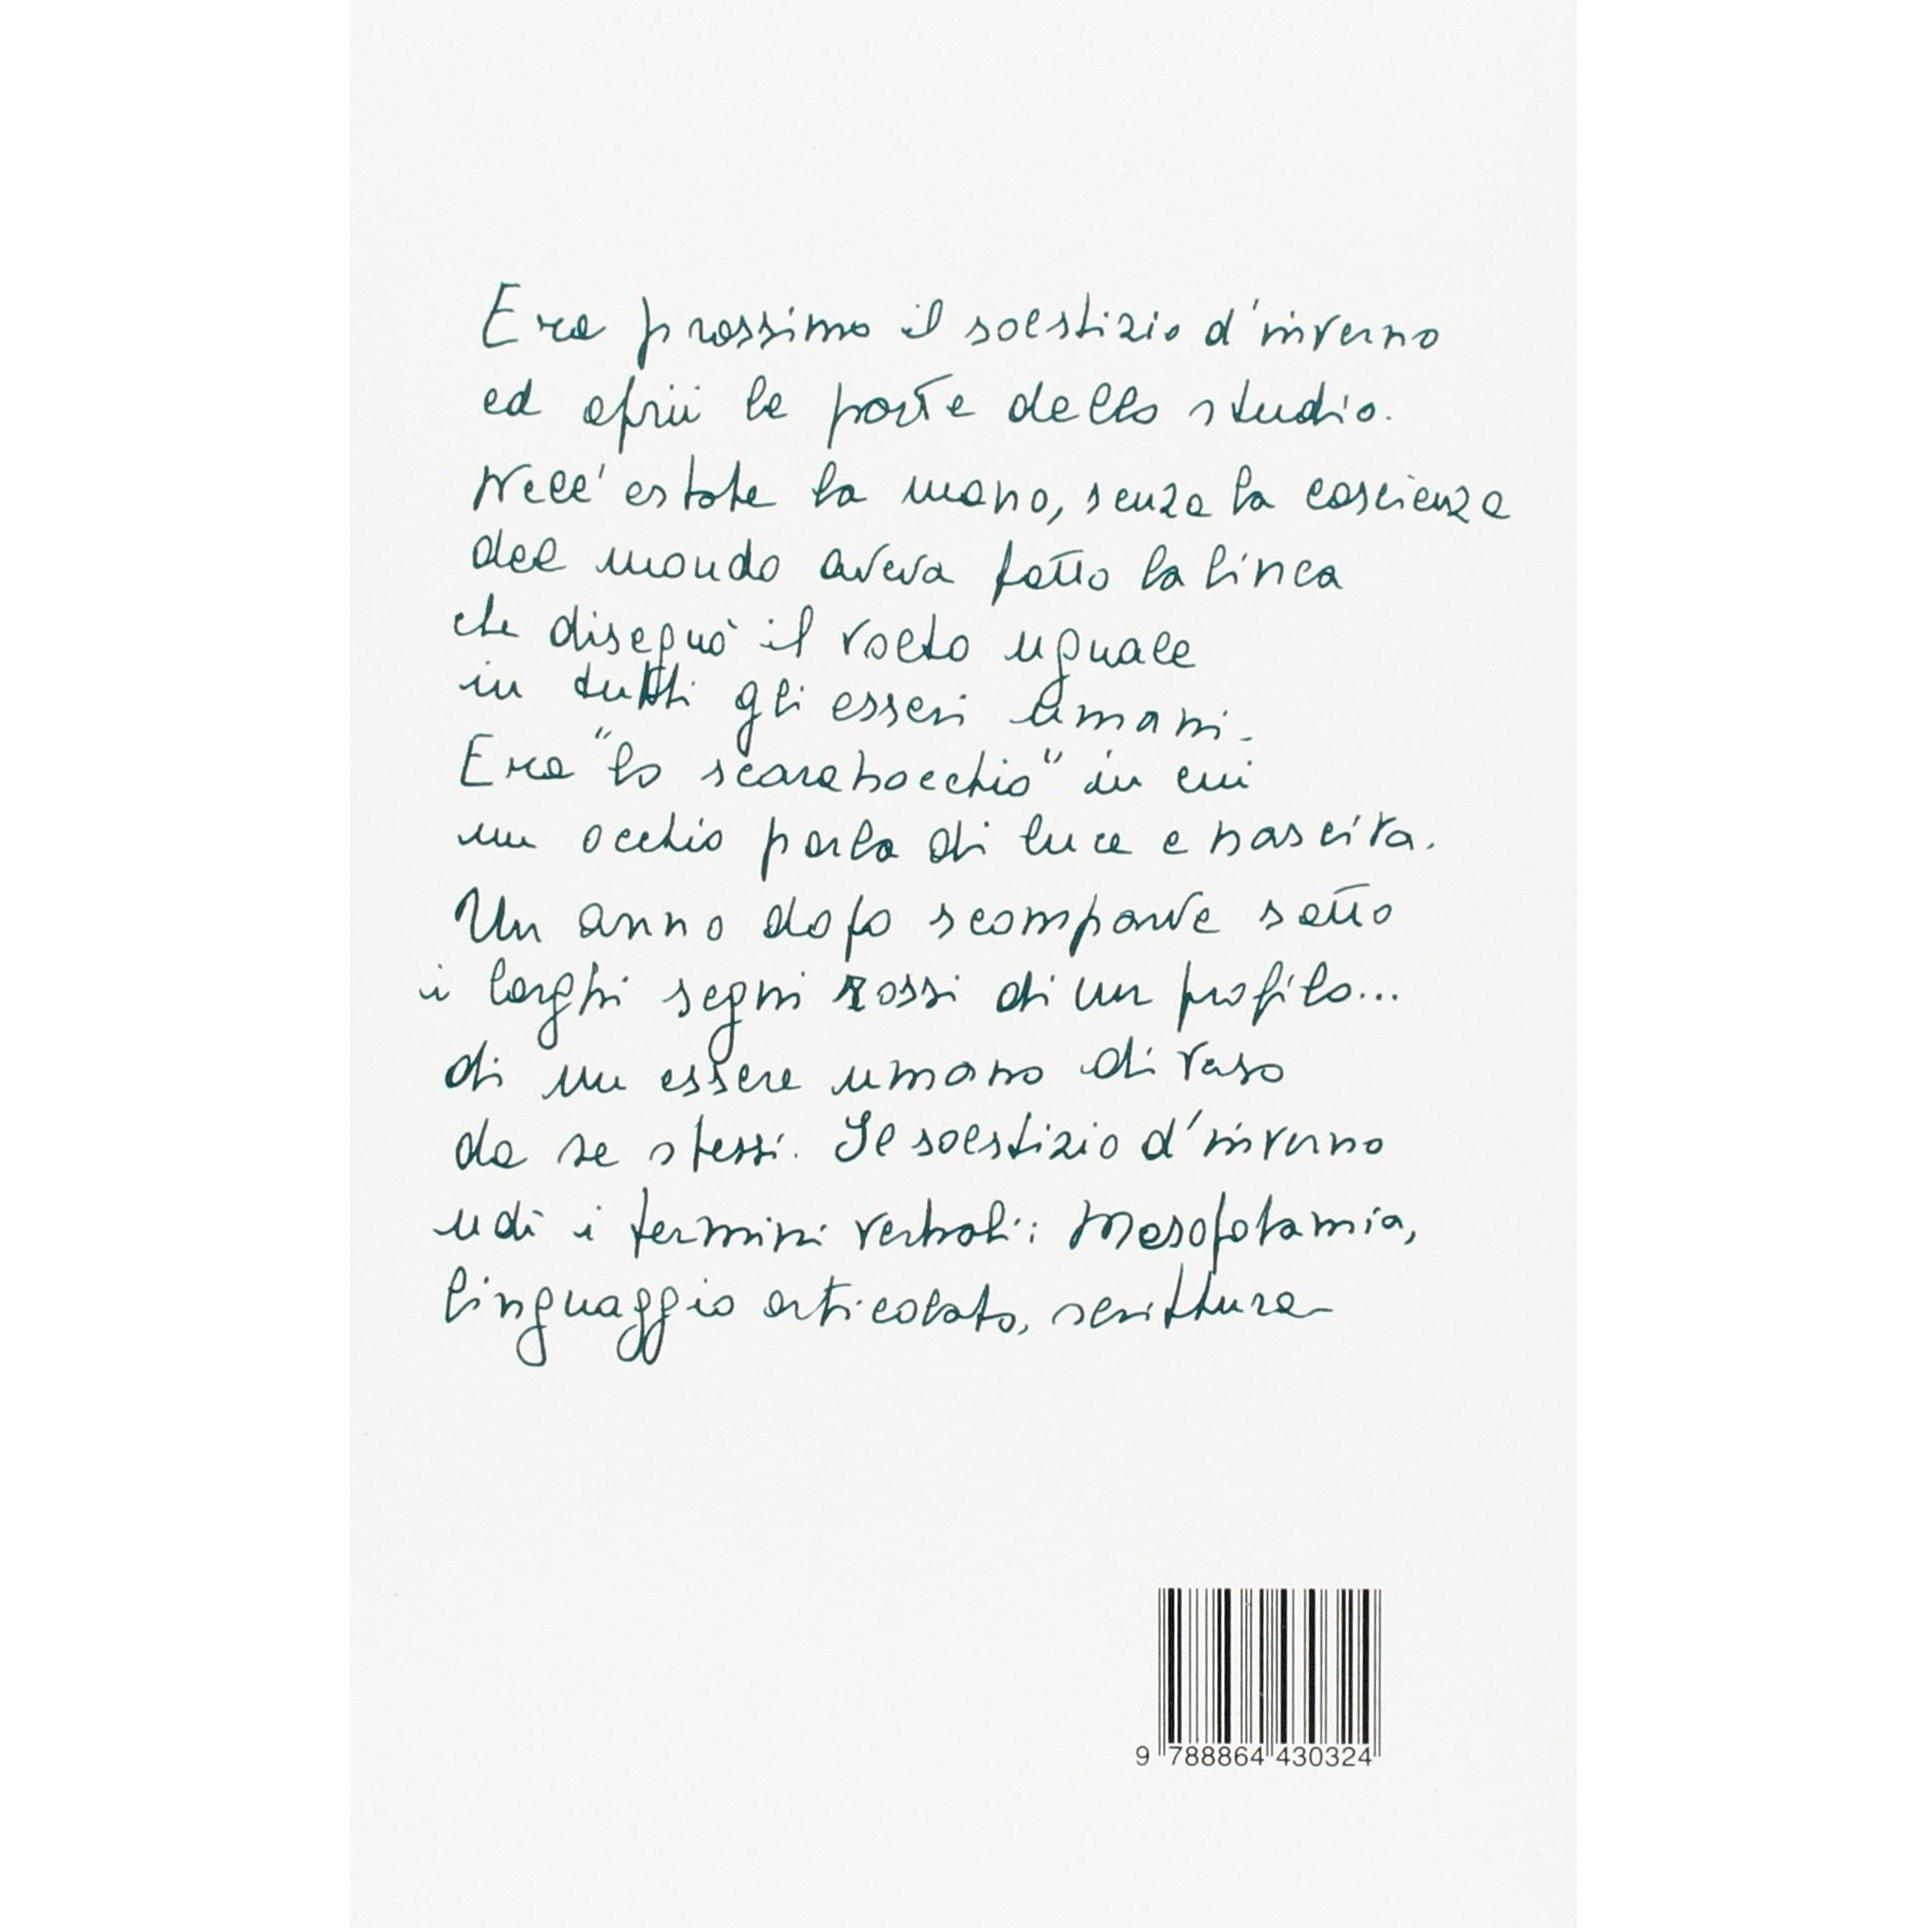 Era prossimo il solstizio d'inverno
ed aprii le porte dello studio.
Nell'estate la mano, senza la coscienza
del mondo aveva fatto la linea
che disegnò il volto uguale
in tutti gli esseri umani.
Era "lo scarabocchio" in cui
un occhio parla di luce e nascita.
Un anno dopo scomparve sotto
i larghi segni rossi di un profilo...
di un essere umano di vaso
da se stessi. Il solstizio d'inverno
udì i termini verbali: Mesopotamia,
linguaggio articolato, scrittura
9 788864 430324